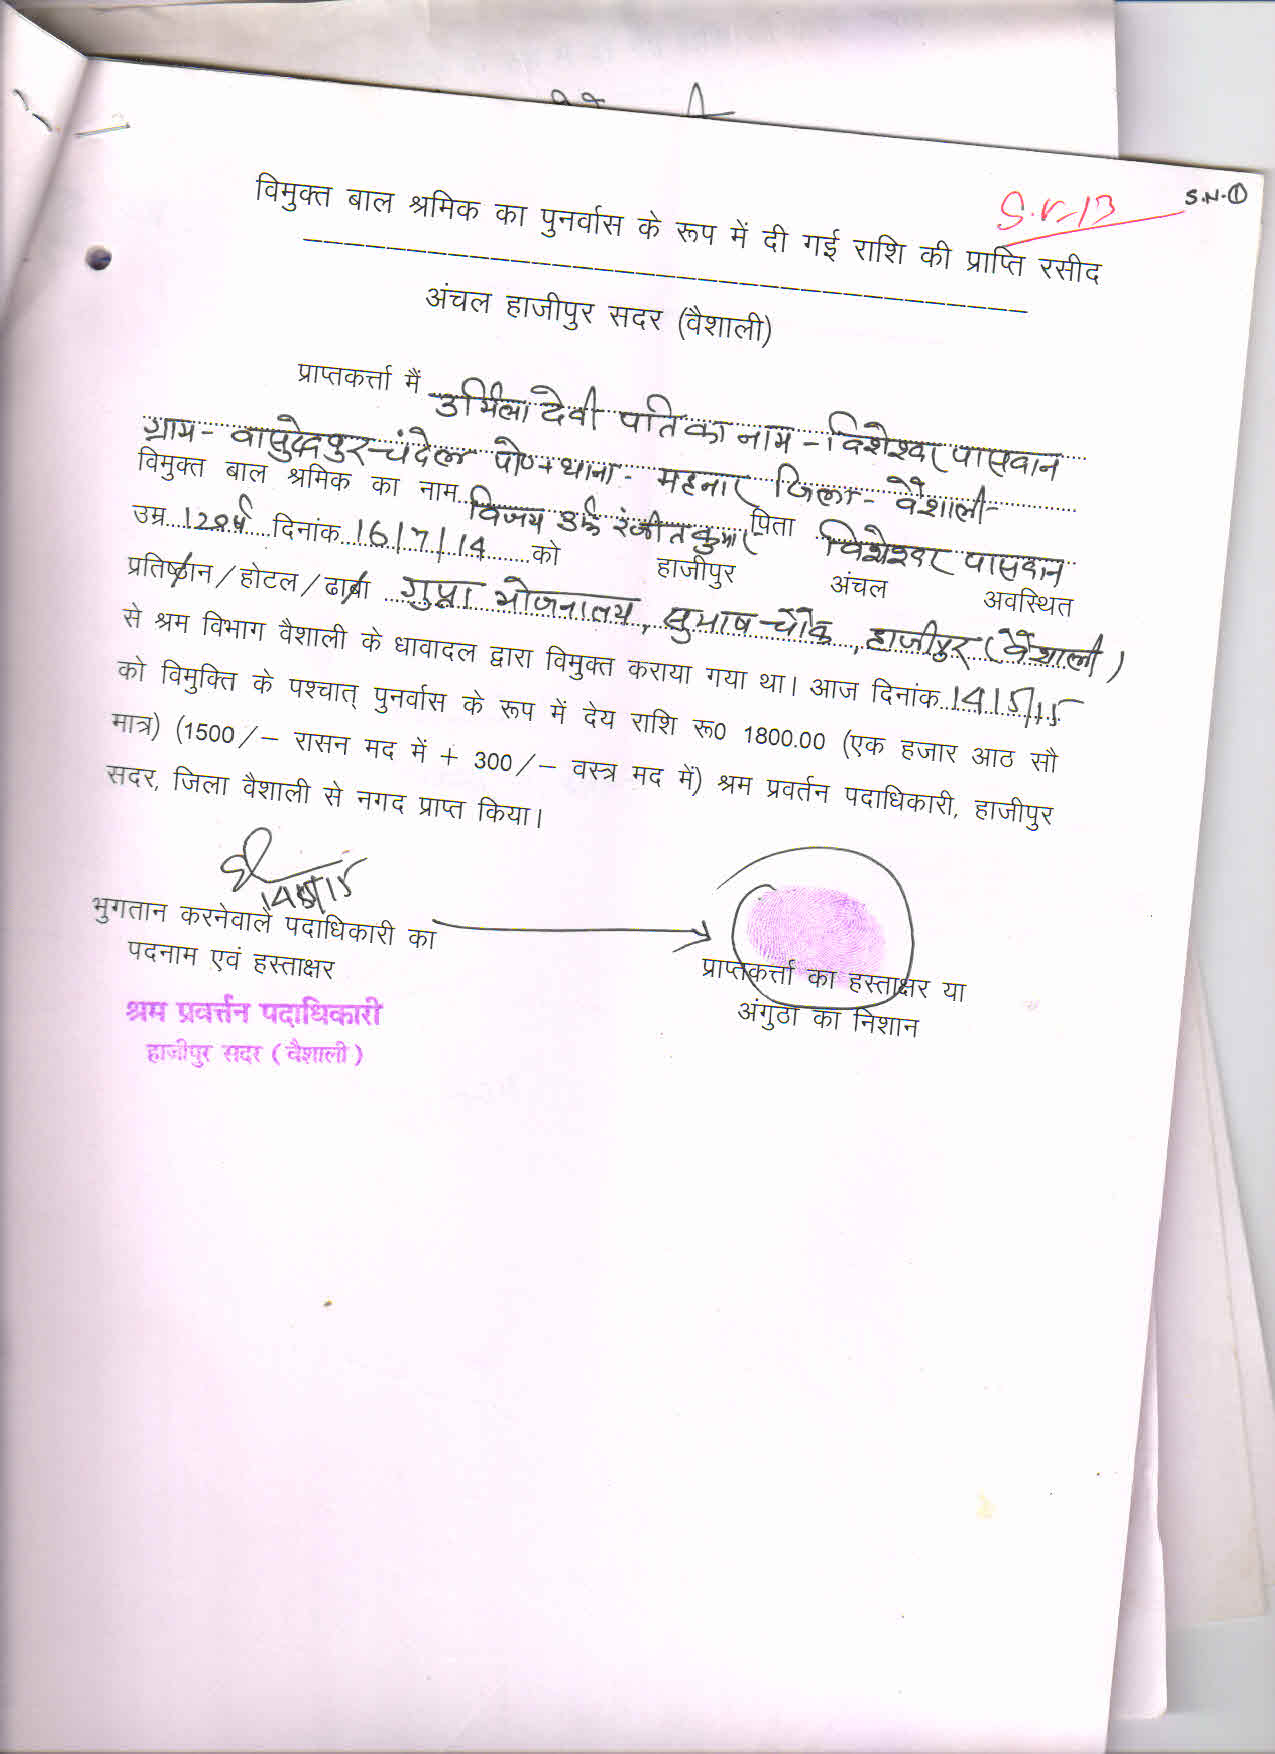 S.N-①
S.N-13
विमुक्त बाल श्रमिक का पुनर्वास के रूप में दी गई राशि की प्राप्ति रसीद
अंचल हाजीपुर सदर (वैशाली)
प्राप्तकर्त्ता मैं उर्मिला देवी पति का नाम - विशेश्वर पासवान
ग्राम - वासुदेवपुर चंदेल पो० + थाना - महनार जिला - वैशाली
विमुक्त बाल श्रमिक का नाम विजय उर्फ रंजीत कुमार पिता विशेश्वर पासवान
उम्र 12 वर्ष दिनांक 16/7/14 को हाजीपुर अंचल अवस्थित
प्रतिष्ठान/होटल/ढाबा गुप्ता भोजनालय, सुभाष चौक, हाजीपुर (वैशाली)
से श्रम विभाग वैशाली के धावादल द्वारा विमुक्त कराया गया था। आज दिनांक 14/5/15
को विमुक्ति के पश्चात् पुनर्वास के रूप में देय राशि रू0 1800.00 (एक हजार आठ सौ
मात्र) (1500/– रासन मद में + 300/– वस्त्र मद में) श्रम प्रवर्तन पदाधिकारी, हाजीपुर
सदर, जिला वैशाली से नगद प्राप्त किया।
14/5/15
भुगतान करनेवाले पदाधिकारी का
पदनाम एवं हस्ताक्षर
प्राप्तकर्त्ता का हस्ताक्षर या
अंगुठा का निशान
श्रम प्रवर्त्तन पदाधिकारी
हाजीपुर सदर (वैशाली)